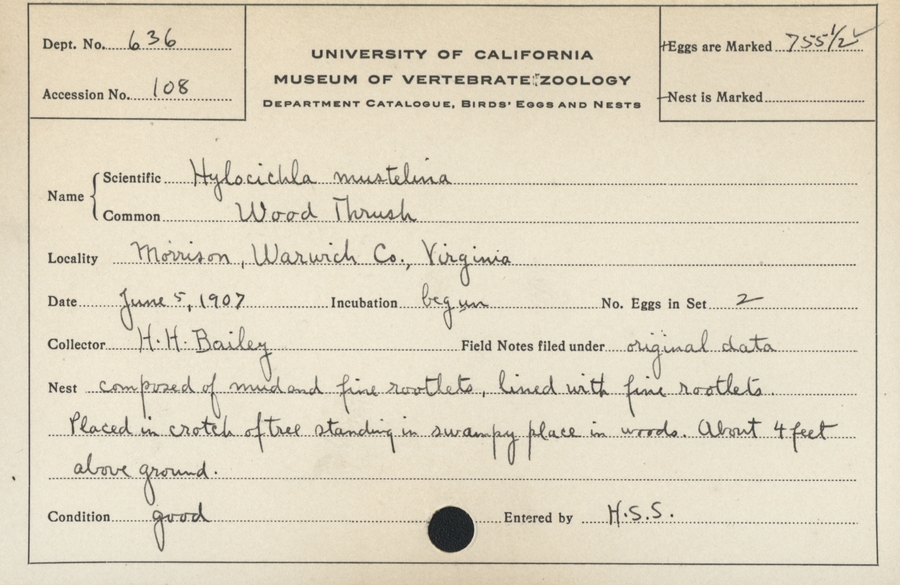 Dept. No. 636
Accession No. 108
UNIVERSITY OF CALIFORNIA
MUSEUM OF VERTEBRATE ZOOLOGY
DEPARTMENT CATALOGUE, BIRDS' EGGS AND NESTS
Eggs are Marked 755 1/2
Nest is Marked
Name
Scientific Hylocichla mustelina
Common Wood Thrush
Locality Morrison, Warwich Co., Virginia
Date June 5, 1907 Incubation begun No. Eggs in Set 2
Collector H.H. Bailey Field Notes filed under original data
Nest composed of mud and fine rootlets, lined with fine rootlets.
Placed in crotch of tree standing in swampy place in woods. About 4 feet
above ground.
Condition good Entered by H.S.S.